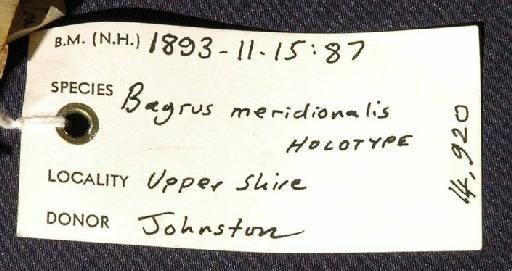 B.M. (N.H.) 1893-11-15:87
SPECIES Bagrus meridionalis
HOLOTYPE
LOCALITY Upper Shire
DONOR Johnston
14,920